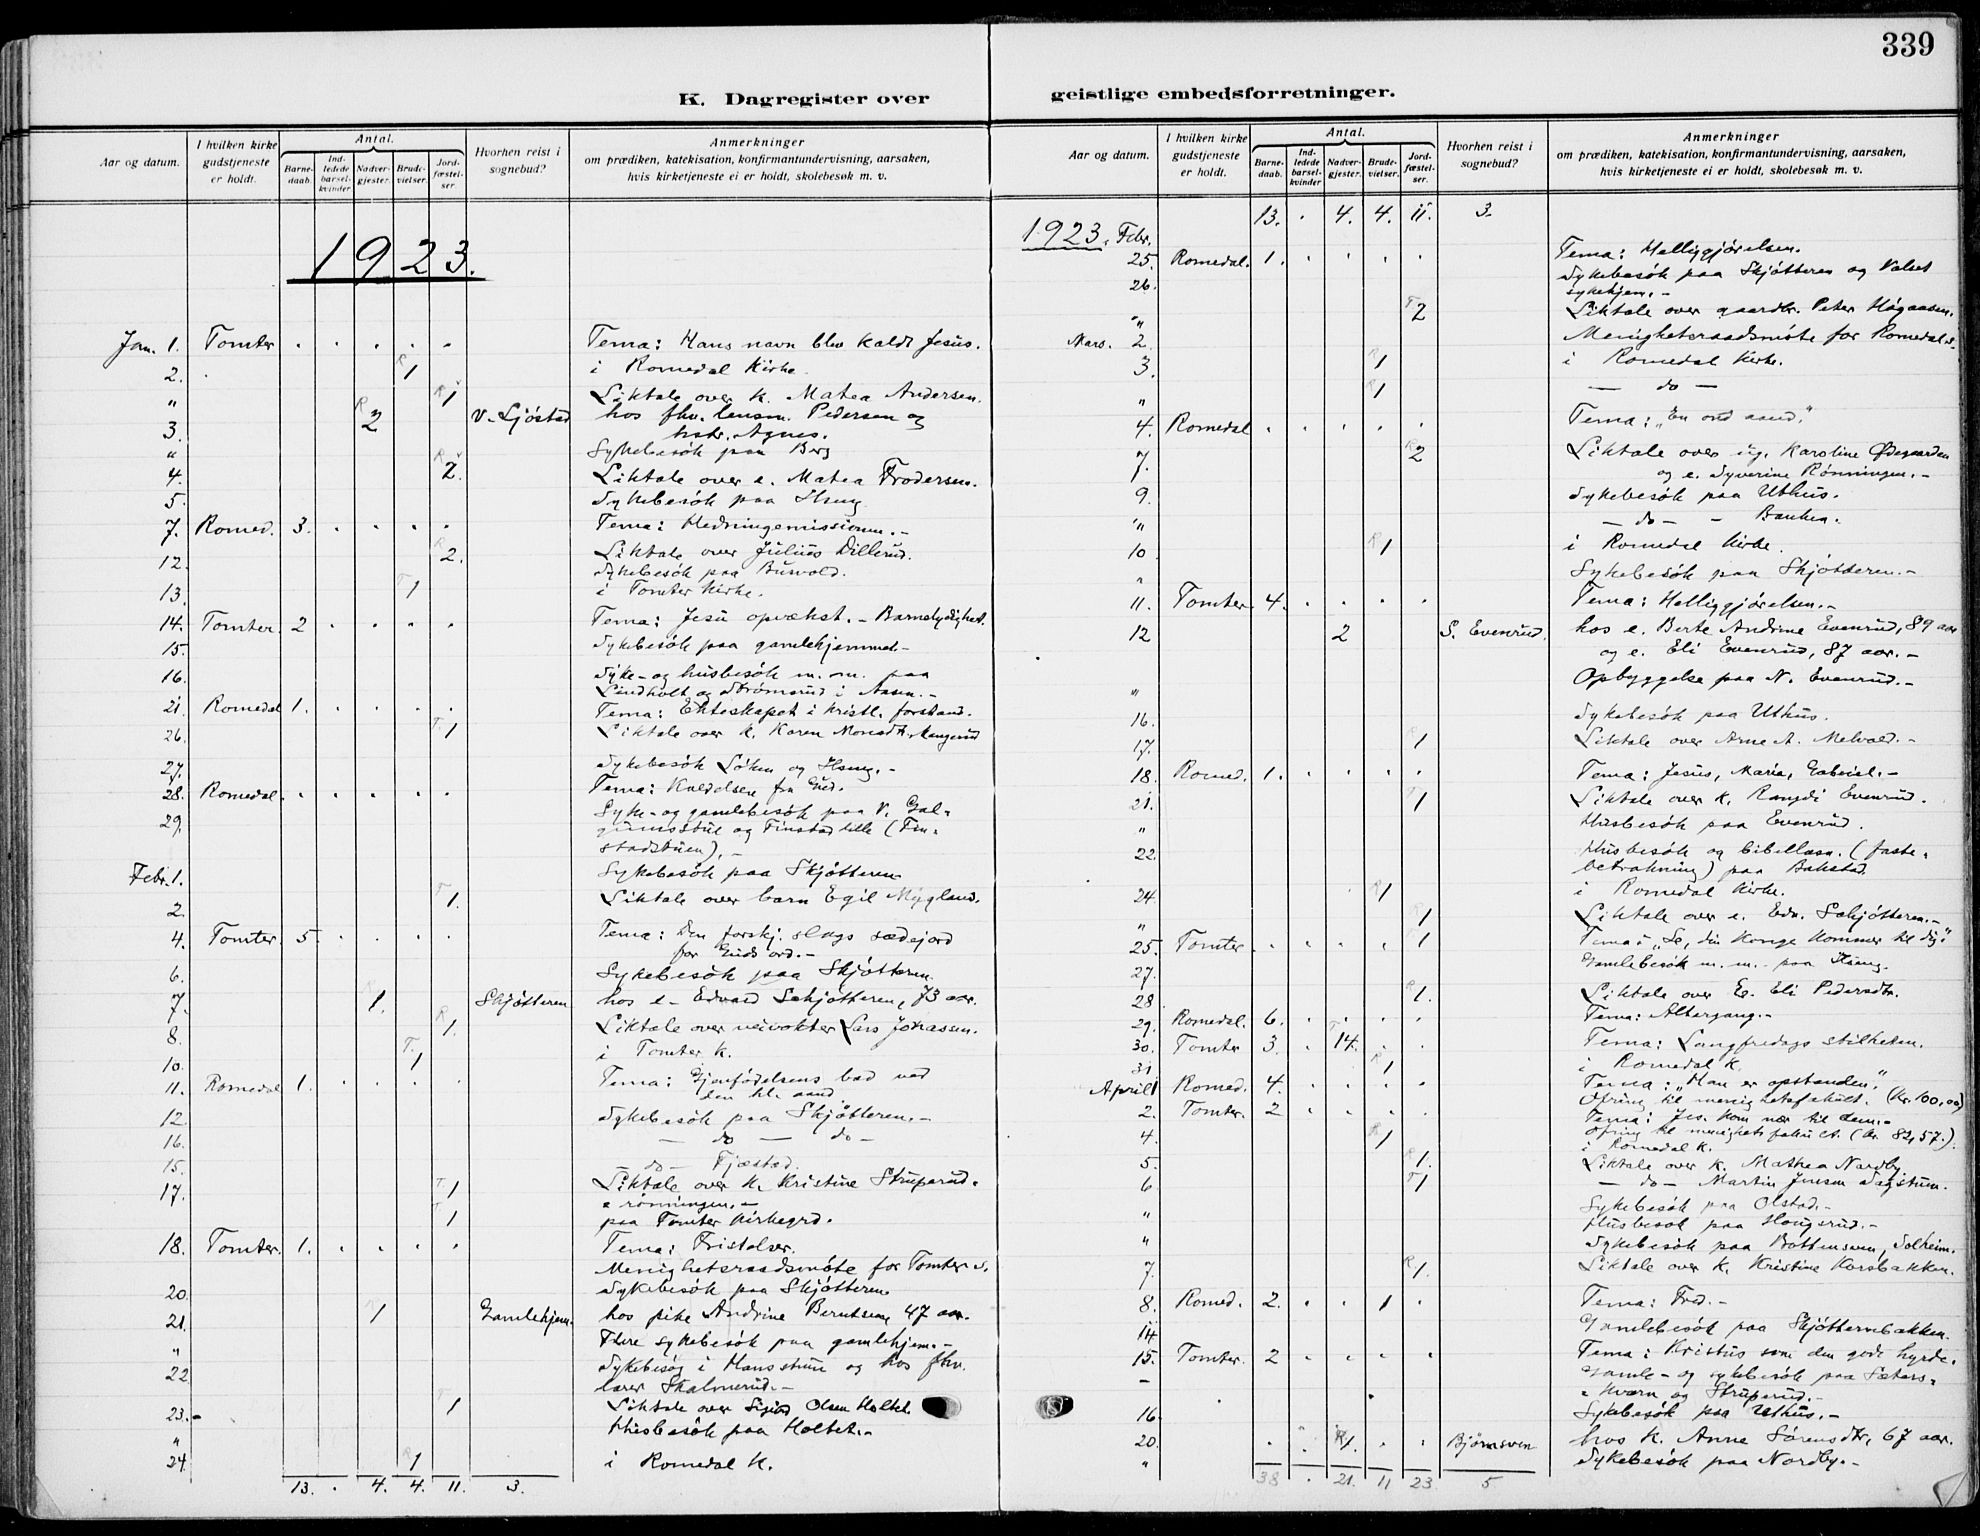 339
K. Dagregister over geistlige embedsforretninger.
Aar og datum. I hvilken kirke gudstjeneste er holdt. Antal. Barnedaab. Indledede barselkvinder Nadvergjester. Brudevielser. Jordfæstelser. Hvorhen reist i sognebud? Anmerkninger om prædiken, katekisation, konfirmantundervisning, aarsaken, hvis kirketjeneste ei er holdt, skolebesøk m. v.
1923.
Jan. 1. Tomter . . . . . Tema: Hans navn blev kaldt Jesus.
2. R 1 i Romedal Kirke
" R 1 Liktale over k. Matea Andersen.
3. R 2 V. Ljøstad hos fhv. lensm. Pedersen og
hstr. Agnes.
" Sykebesök paa Berg
4. R 2. Liktale over e. Matea Frodersen.
5. Sykebesök paa Ilseng
7. Romed. 3. . . . . Tema: Hedningemissionen.-
12. R 2. Liktale over Julius Dillerud.
Sykebesök paa
13. T 1 i Tomter Kirke.
14. Tomter 2 . . . . Tema: Jesu opvækst. - Barnelydighet.
15. Sykebesök paa gamlehjemmet.-
16. Syke- og husbesök m. m. paa
Lindholt og Strömsrud i Aasen.-
21. Romedal 1. . . . . Tema: Ekteskapet i kristl. forstand.
26. T. 1 Liktale over k. Karen
27. Sykebesök Löken og Ilseng.-
28. Romedal . . . . . Tema: Kaldelsen fra Gud.
29. Syke- og gamlebesök paa V. Gal-
gumsstue og Finstad lille (Fin-
stadstuen).-
Febr. 1. Sykebesök paa Skjötteren
2. T 1. Liktale over barn Egil Mygland.
4. Tomter. 5. . . . . Tema: Den forskj. slags sædejord
for Guds ord.-
6. Sykebesök paa Skjötteren.
7. R 1. Skjötteren hos e- Edvard Schjötteren, 73 aar.
8. R 1. Liktale over veivokter Lars Johassen.
10. T. 1 i Tomter K.
11. Romedal 1. . . . . Tema: Gjenfödelsens bad ved
den hl. aand.
12. Sykebesök paa Skjötteren.-
16. - do - do -
15. - do - Fjæstad.
17. T. 1 Liktale over k. Kristine Struperud-
rönningen.-
T 1 paa Tomter Kirkegrd.
18. Tomter. 1. . . . . Tema: Fristelser.
Menighetsraadsmöte for Tomter s.
20. Sykebesök paa Skjötteren
21. 1 Gamlehjem. hos pike Andrine Berntsen 47 aar.
" Flere sykebesök paa gamlehjem.-
22 Sykebesög i Hansstuen og hos fhv.
lærer Skalmerud.-
23.- T 1 Liktale over Sigvd Olsen Holtet.
" Husbesök paa Holtet.-
24. R 1 i Romedal K.
13. . 4. 4. 11. 3.
Aar og datum. I hvilken kirke gudstjeneste er holdt. Antal. Barnedaab. Indledede barselkvinder Nadvergjester. Brudevielser. Jordfæstelser. Hvorhen reist i sognebud? Anmerkninger om prædiken, katekisation, konfirmantundervisning, aarsaken, hvis kirketjeneste ei er holdt, skolebesøk m. v.
13. . 4. 4. 11. 3.
1923. Febr.
25. Romedal. 1. . . . . Tema: Helliggjörelsen.
26. Sykebesök paa Skjötteren og Valset
sykehjem.-
" T 2 Liktale over gaardbr. Peter Högaasen.
Mars. 2. Menighetsraadsmöte for Romedal s.
3. R 1 i Romedal Kirke.
" R 1 - do -
4. Romedal . . . . . Tema: "En ond aand."
7. R 2 Liktale over ug. Karoline Ödegaarden
og e. Syverine Rönningen.-
9. Sykebesök paa Uthus.
" - do - - Bauken.
10 R 1 i Romedal Kirke.
" Sykebesök paa Skjötteren.-
11. Tomter. 4. . . . . Tema: Helliggjörelsen.-
12 2 S. Evenrud. hos e. Berte Andrine Evenrud, 89 aar
og e. Eli Evenrud, 87 aar.-
" Opbyggelse paa N. Evenrud.-
16. Sykebesök paa Uthus.
17. R 1 Liktale over Arne A. Melvold.-
18. Romed. 1. . . . . Tema: Jesus, Maria, Gabriel.-
21. T 1 Liktale over k. Rangdi Evenrud.
" Husbesök paa Evenrud.
22. Husbesök og bibellæsn. (faste-
betrakning) paa Bakstad.
24. R 1 i Romedal Kirke.
" R 1 Liktale over e. Edv. Schjötteren.-
25. Tomter. . . . . 1 Tema: "Se, din Konge kommer til dig."
27. Gamlebesök m. m. paa Ilseng.
28 R 1. Liktale over E. Eli Pedersdtr.
29. Romedal. 6. . . . . Tema: Altergang.-
30. Tomter 3. . T 14. . . Tema: Langfredags stilheten.
31 R 1 i Romedal K.
April 1 Romed. 4. . . . . Tema: "Han er opstanden."
Ofring til menighetsfakult. (Kr. 100,00)
2. Tomter. 2 . . . . Tema: Jes. kom nær til dem.-
Ofring til menighetsfakult. (Kr. 82,57.)
4. R 1 i Romedal K.
5. R 1. Liktale over k. Mathea Nordby
6 T 1 - do - Martin Jensen Sagstuen.
" Sykebesök paa Olstad.-
Husbesök paa Haugsrud.-
" Sykebesök paa Bottensven, Solheim.
7. R 1. Liktale over k. Kristine Korsbakken.
8. Romed. 2. . . 1 . Tema: Fred.-
14. Gamlebesök paa Skjötterenbakken.
15. Tomter. 2 . . . . Tema: Kristus som den gode hyrde.
- Gamle- og sykebesök paa Sæters-
kværn og Struperud.-
16. Sykebesök paa Uthus.-
20. . . R 1. . . Björnsven hos k. Anne Sörensdtr, 67 aar.
" Sykebesök paa Nordby.-
38 . 21. 11 23 5